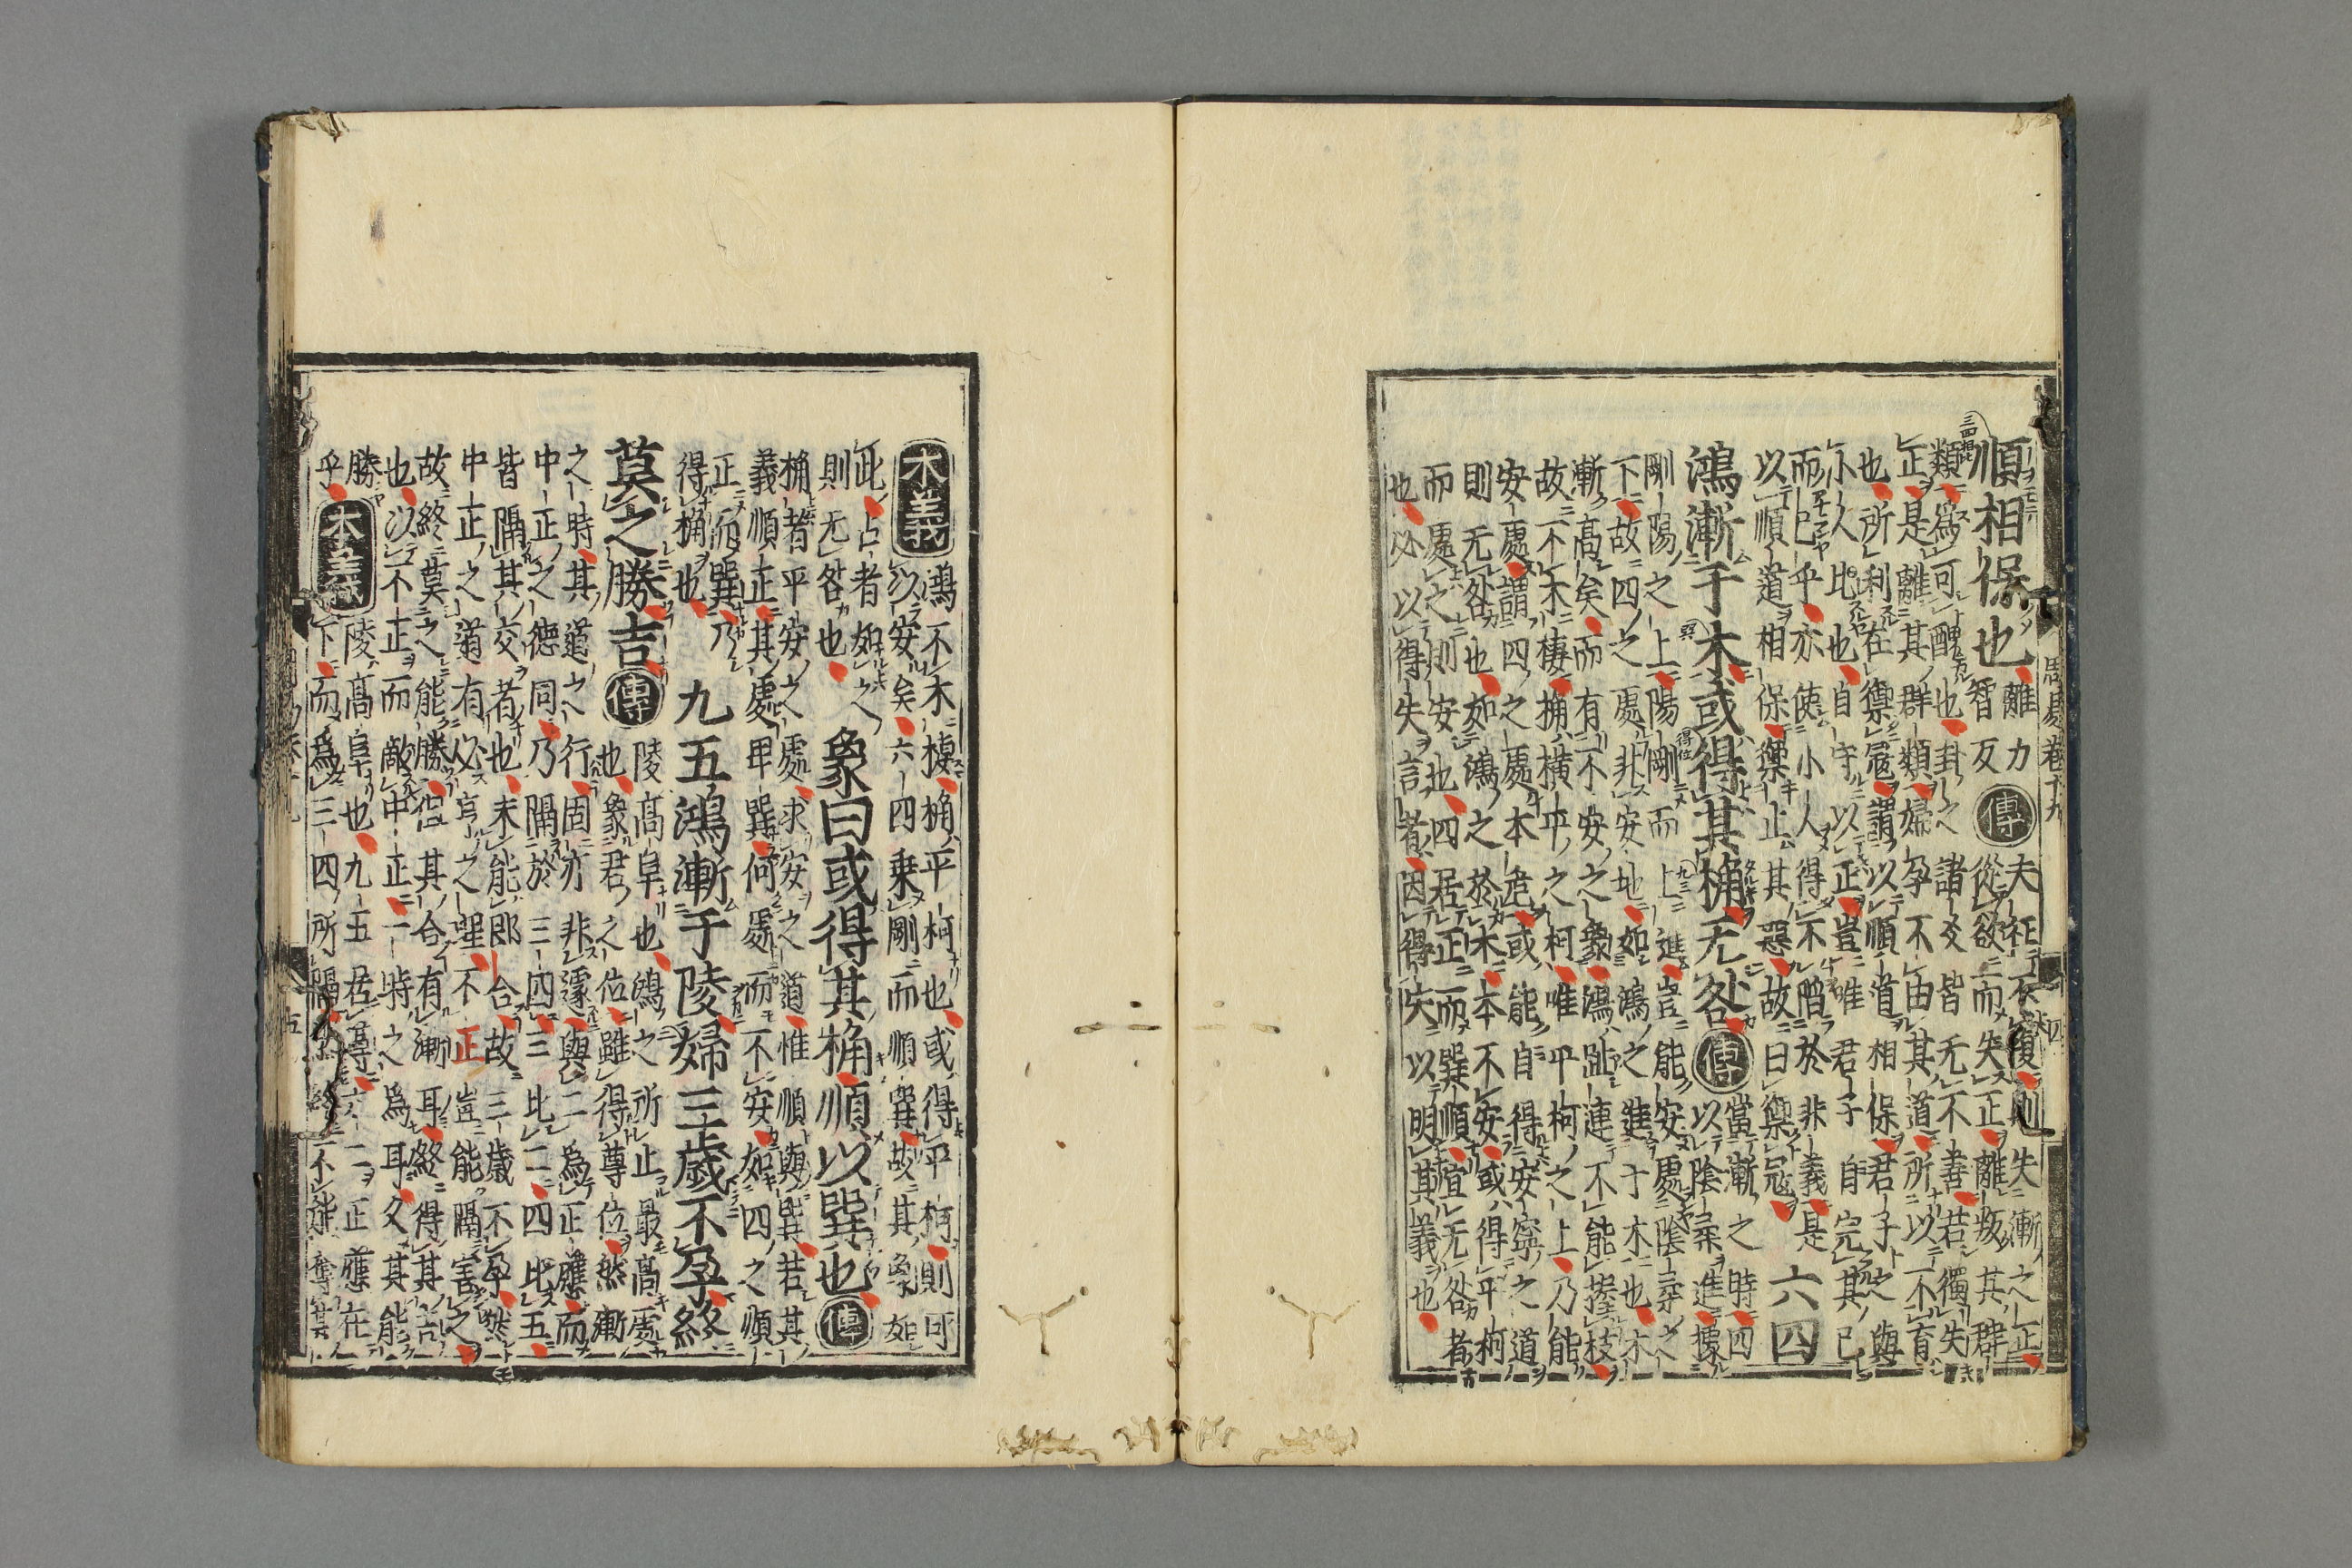 周易卷十九
四
順相保也
離力
智反
傳
夫征不復則失漸之正
從欲而失正離叛其群
類爲可醜也卦之諸爻皆无不善若獨失
正是離其群類婦孕不由其道所以不育
也所利在禦寇謂以順道相保君子之與
小人比也自守以正豈唯君子自完其己
而已乎亦使小人得不陷於非義是
以順道相保禦止其惡故曰禦寇
六四
鴻漸于木或得其桷无咎傳
當漸之時四
以陰柔進據
剛陽之上陽剛而上進豈能安處陰柔之
下故四之處非安地如鴻之進于木也木
漸高矣而有不安之象鴻趾連不能握枝
故不木棲桷橫平之柯唯平柯之上乃能
安處謂四之處本危或能自得安寧之道
則无咎也如鴻之於木本不安或得平柯
而處之則安也四居正而巽順宜无咎者
也必以得失言者因得失以明其義也
本義
鴻不木棲桷平柯也或得平柯則可
以安矣六四乗剛而順巽故其象如
此占者如之
則无咎也
象曰或得其桷順以巽也傳
桷者平安之處求安之道惟順與巽若其
義順正其處卑巽何處而不安如四之順
正而巽乃
得桷也
九五鴻漸于陵婦三歳不孕終
莫之勝吉傳
陵高阜也鴻之所止最高處
也象君之位雖得尊位然漸
之時其道之行固亦非遽與二爲正應而
中正之德同乃隔於三四三比二四比五
皆隔其交者也未能即合故三歳不孕然
中正之道有必亨之理不正豈能隔害之
故終莫之能勝但其合有漸耳終得其吉
也以不正而敵中正一時之爲耳久其能
勝
乎
本義
陵高阜也九五居尊六二正應在
下而爲三四所隔然終不能奪其